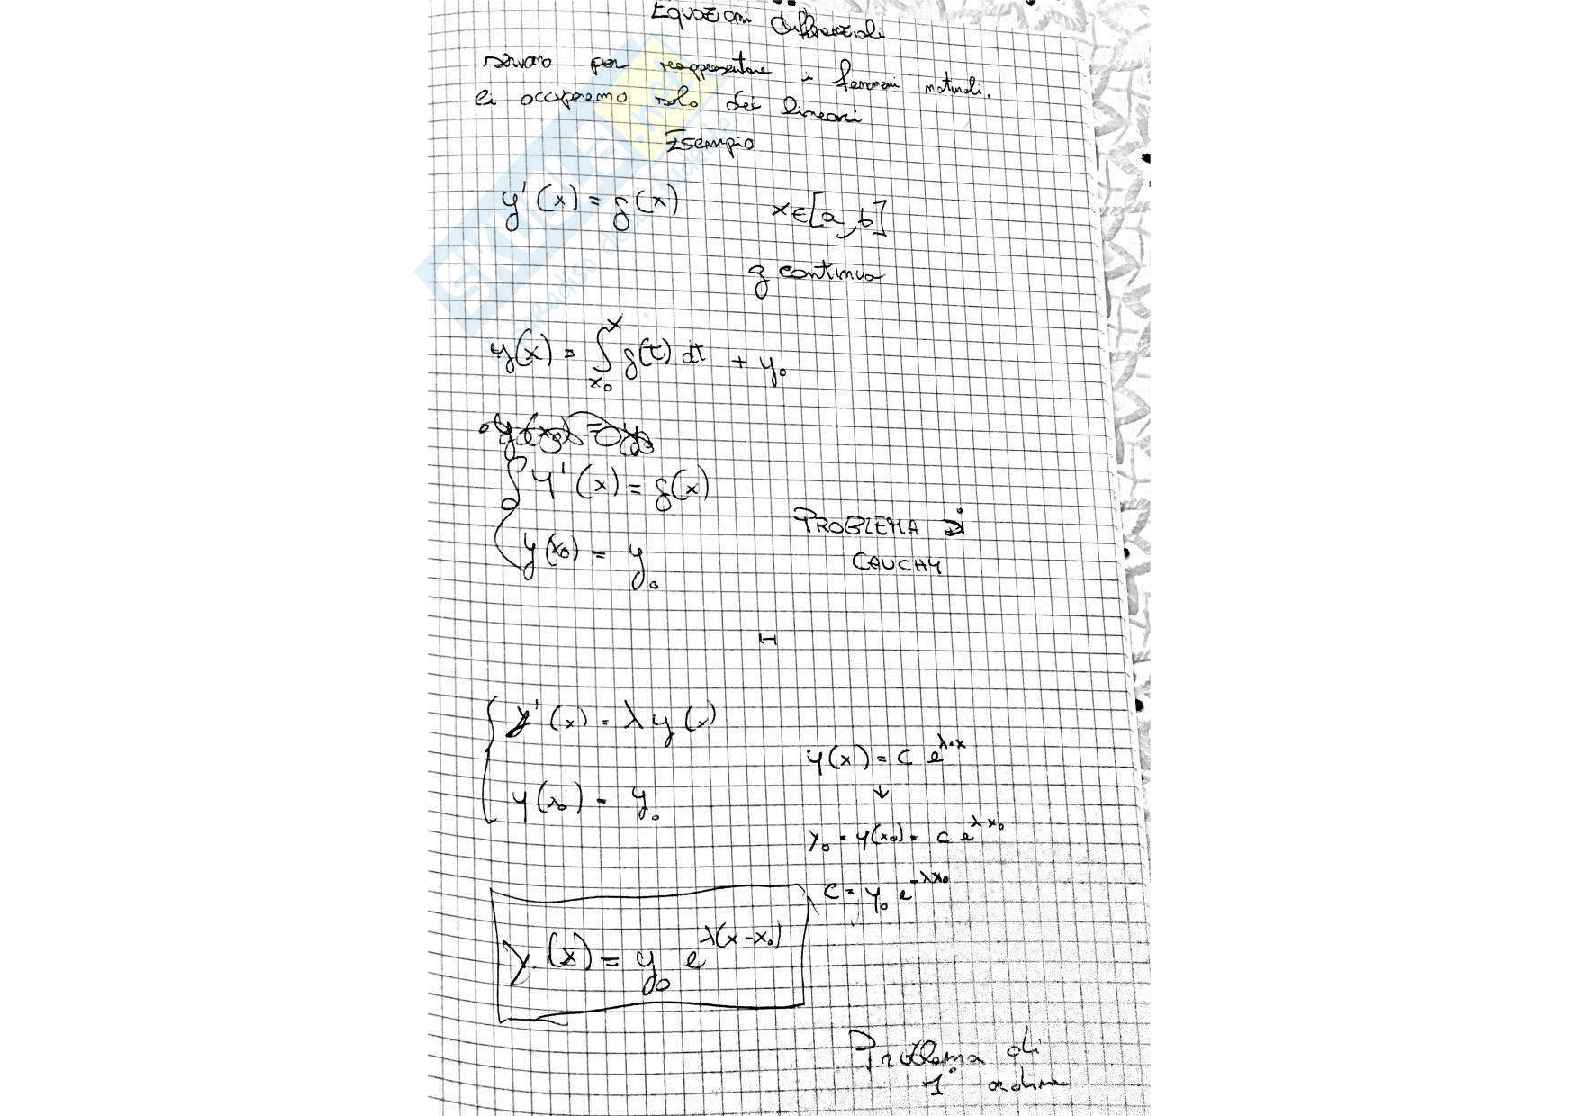 Equazioni differenziali
servono per rappresentare i fenomeni naturali.
Ci occuperemo solo dei lineari
Esempio
y'(x) = g(x) x∈[a,b]
g continua
y(x) = ∫_{x₀}^{x} g(t) dt + y₀
{ y'(x) = g(x)
PROBLEMA DI
y(x₀) = y₀
CAUCHY
{ y'(x) = λ y(x)
y(x) = c e^{λ·x}
↓
y(x₀) = y₀
y₀ = y(x₀) = c e^{λx₀}
c = y₀ e^{-λx₀}
y(x) = y₀ e^{λ(x-x₀)}
Problema di
1° ordine